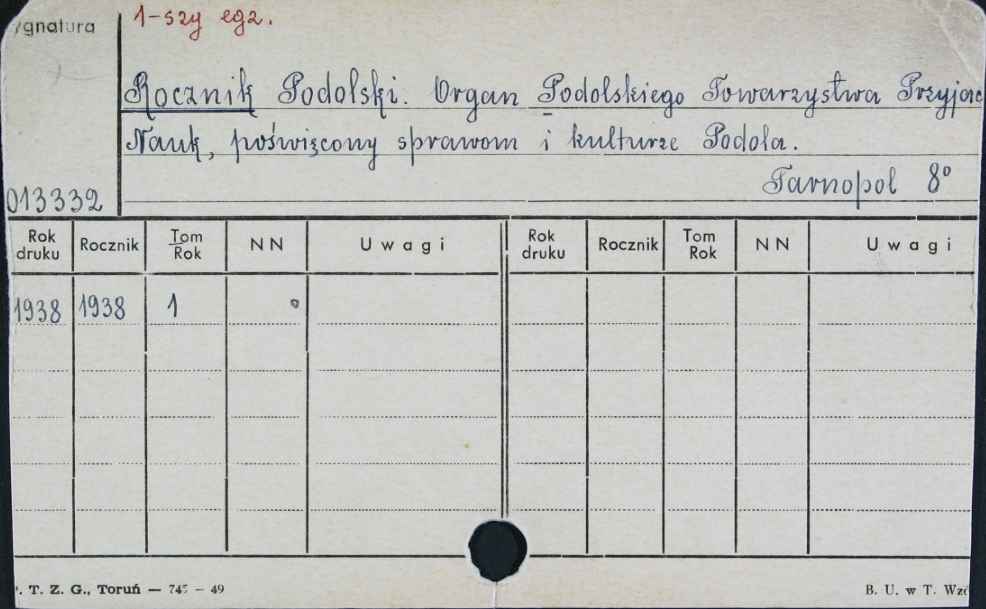 ygnatura
1-szy egz.
Rocznik Podolski. Organ Podolskiego Towarzystwa Przyjac
Nauk, poświęcony sprawom i kulturze Podola.
Tarnopol 8°
013332
Rok druku Rocznik Tom Rok NN Uwagi Rok druku Rocznik Tom Rok NN Uwagi
1938 1938 1 °
T. Z. G., Toruń — 745 — 49 B. U. w T. Wzó